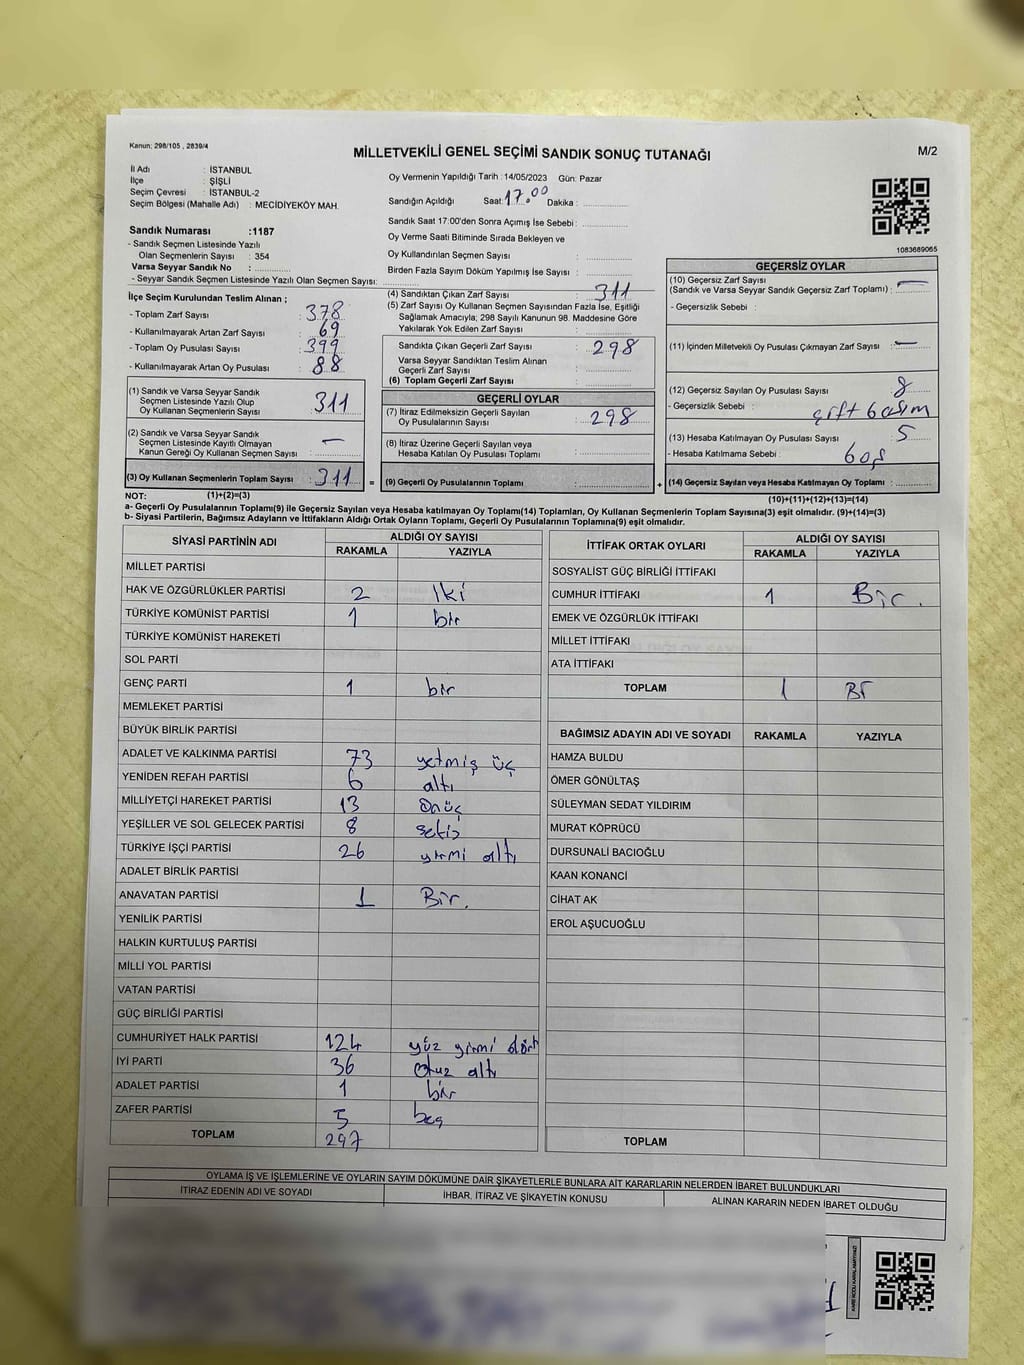 Kanun; 298/105 , 2839/4
MİLLETVEKİLİ GENEL SEÇİMİ SANDIK SONUÇ TUTANAĞI
M/2
İl Adı : İSTANBUL
İlçe : ŞİŞLİ
Seçim Çevresi : İSTANBUL-2
Seçim Bölgesi (Mahalle Adı) : MECİDİYEKÖY MAH.
Sandık Numarası :1187
- Sandık Seçmen Listesinde Yazılı
Olan Seçmenlerin Sayısı : 354
Varsa Seyyar Sandık No :
- Seyyar Sandık Seçmen Listesinde Yazılı Olan Seçmen Sayısı:
İlçe Seçim Kurulundan Teslim Alınan ;
- Toplam Zarf Sayısı : 378
- Kullanılmayarak Artan Zarf Sayısı : 69
- Toplam Oy Pusulası Sayısı : 399
- Kullanılmayarak Artan Oy Pusulası : 88
(1) Sandık ve Varsa Seyyar Sandık
Seçmen Listesinde Yazılı Olup
Oy Kullanan Seçmenlerin Sayısı : 311
(2) Sandık ve Varsa Seyyar Sandık
Seçmen Listesinde Kayıtlı Olmayan
Kanun Gereği Oy Kullanan Seçmen Sayısı : —
(3) Oy Kullanan Seçmenlerin Toplam Sayısı : 311 =
Oy Vermenin Yapıldığı Tarih : 14/05/2023 Gün: Pazar
Sandığın Açıldığı Saat: 17.00 Dakika :
Sandık Saat 17:00'den Sonra Açımış İse Sebebi :
Oy Verme Saati Bitiminde Sırada Bekleyen ve
Oy Kullandırılan Seçmen Sayısı :
Birden Fazla Sayım Döküm Yapılmış İse Sayısı :
(4) Sandıktan Çıkan Zarf Sayısı : 311
(5) Zarf Sayısı Oy Kullanan Seçmen Sayısından Fazla İse, Eşitliği
Sağlamak Amacıyla; 298 Sayılı Kanunun 98. Maddesine Göre
Yakılarak Yok Edilen Zarf Sayısı :
Sandıkta Çıkan Geçerli Zarf Sayısı : 298
Varsa Seyyar Sandıktan Teslim Alınan
Geçerli Zarf Sayısı :
(6) Toplam Geçerli Zarf Sayısı :
GEÇERLİ OYLAR
(7) İtiraz Edilmeksizin Geçerli Sayılan
Oy Pusulalarının Sayısı : 298
(8) İtiraz Üzerine Geçerli Sayılan veya
Hesaba Katılan Oy Pusulası Toplamı :
(9) Geçerli Oy Pusulalarının Toplamı : +
1083689065
GEÇERSİZ OYLAR
(10) Geçersiz Zarf Sayısı
(Sandık ve Varsa Seyyar Sandık Geçersiz Zarf Toplamı) : —
- Geçersizlik Sebebi :
(11) İçinden Milletvekili Oy Pusulası Çıkmayan Zarf Sayısı : —
(12) Geçersiz Sayılan Oy Pusulası Sayısı : 8
- Geçersizlik Sebebi : çift basım
(13) Hesaba Katılmayan Oy Pusulası Sayısı : 5
- Hesaba Katılmama Sebebi : boş
(14) Geçersiz Sayılan veya Hesaba Katılmayan Oy Toplamı :
NOT: (1)+(2)=(3) (10)+(11)+(12)+(13)=(14)
a- Geçerli Oy Pusulalarının Toplamı(9) ile Geçersiz Sayılan veya Hesaba katılmayan Oy Toplamı(14) Toplamları, Oy Kullanan Seçmenlerin Toplam Sayısına(3) eşit olmalıdır. (9)+(14)=(3)
b- Siyasi Partilerin, Bağımsız Adayların ve İttifakların Aldığı Ortak Oyların Toplamı, Geçerli Oy Pusulalarının Toplamına(9) eşit olmalıdır.
SİYASİ PARTİNİN ADI ALDIĞI OY SAYISI
RAKAMLA YAZIYLA
MİLLET PARTİSİ
HAK VE ÖZGÜRLÜKLER PARTİSİ 2 iki
TÜRKİYE KOMÜNİST PARTİSİ 1 bir
TÜRKİYE KOMÜNİST HAREKETİ
SOL PARTİ
GENÇ PARTİ 1 bir
MEMLEKET PARTİSİ
BÜYÜK BİRLİK PARTİSİ
ADALET VE KALKINMA PARTİSİ 73 yetmiş üç
YENİDEN REFAH PARTİSİ 6 altı
MİLLİYETÇİ HAREKET PARTİSİ 13 onüç
YEŞİLLER VE SOL GELECEK PARTİSİ 8 sekiz
TÜRKİYE İŞÇİ PARTİSİ 26 yirmi altı
ADALET BİRLİK PARTİSİ
ANAVATAN PARTİSİ 1 Bir.
YENİLİK PARTİSİ
HALKIN KURTULUŞ PARTİSİ
MİLLİ YOL PARTİSİ
VATAN PARTİSİ
GÜÇ BİRLİĞİ PARTİSİ
CUMHURİYET HALK PARTİSİ 124 yüz yirmi dört
İYİ PARTİ 36 otuz altı
ADALET PARTİSİ 1 bir
ZAFER PARTİSİ 5 beş
TOPLAM 297
İTTİFAK ORTAK OYLARI ALDIĞI OY SAYISI
RAKAMLA YAZIYLA
SOSYALİST GÜÇ BİRLİĞİ İTTİFAKI
CUMHUR İTTİFAKI 1 Bir.
EMEK VE ÖZGÜRLÜK İTTİFAKI
MİLLET İTTİFAKI
ATA İTTİFAKI
TOPLAM 1 Bir
BAĞIMSIZ ADAYIN ADI VE SOYADI RAKAMLA YAZIYLA
HAMZA BULDU
ÖMER GÖNÜLTAŞ
SÜLEYMAN SEDAT YILDIRIM
MURAT KÖPRÜCÜ
DURSUNALİ BACIOĞLU
KAAN KONANCİ
CİHAT AK
EROL AŞUCUOĞLU
TOPLAM
OYLAMA İŞ VE İŞLEMLERİNE VE OYLARIN SAYIM DÖKÜMÜNE DAİR ŞİKAYETLERLE BUNLARA AİT KARARLARIN NELERDEN İBARET BULUNDUKLARI
İTİRAZ EDENİN ADI VE SOYADI İHBAR, İTİRAZ VE ŞİKAYETİN KONUSU ALINAN KARARIN NEDEN İBARET OLDUĞU